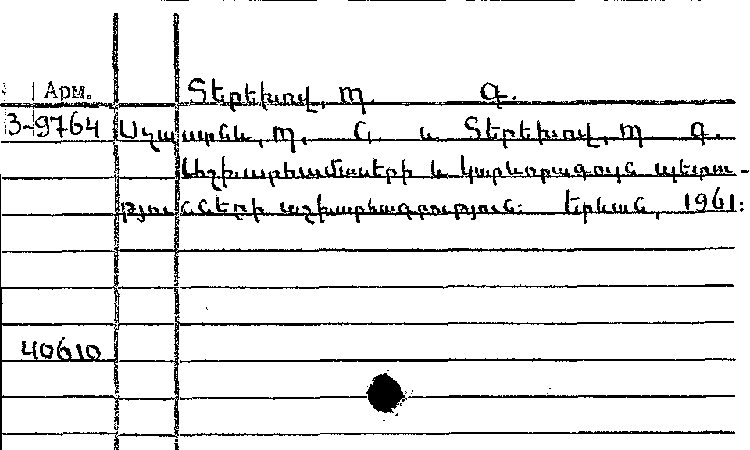 Арм. Տերեխով, Պ. Գ.
3-9764 և Տերեխով, Պ. Գ.
Աշխարհամասերի և կարևորագույն պետու-
թյունների աշխարհագրություն: Երևան, 1961:
40610